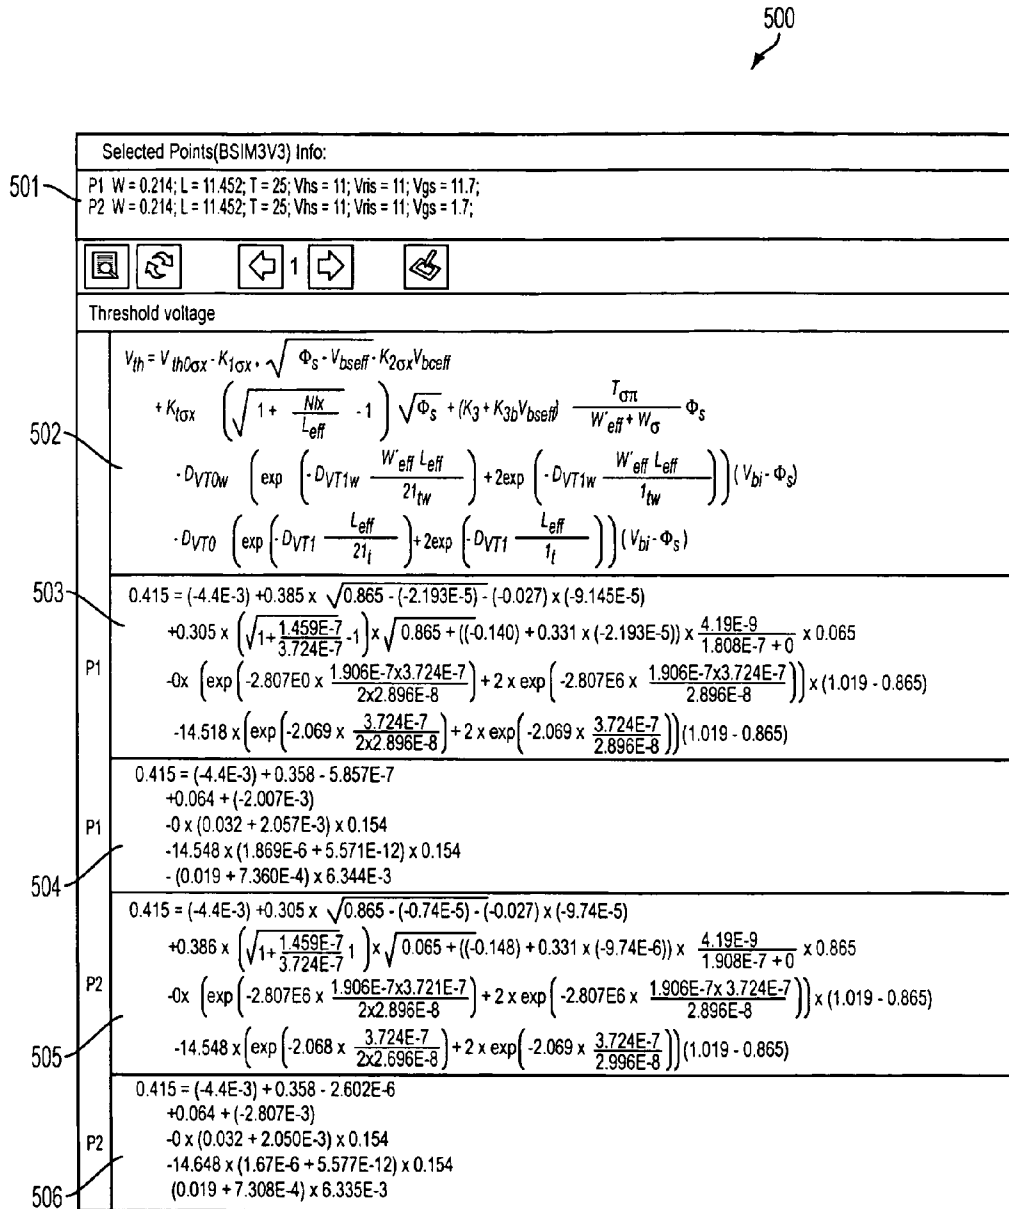 500
Selected Points(BSIM3V3) Info:
501
P1 W = 0.214; L = 11.452; T = 25; Vhs = 11; Vris = 11; Vgs = 11.7;
P2 W = 0.214; L = 11.452; T = 25; Vhs = 11; Vris = 11; Vgs = 1.7;
1
Threshold voltage
502
V_th = V_th0σx - K_1σx · √(Φ_s - V_bseff) - K_2σx V_bceff
+ K_tσx (√(1 + Nlx/L_eff) - 1) √Φ_s + (K_3 + K_3b V_bseff) T_σπ/(W'_eff + W_σ) Φ_s
- D_VT0w (exp (- D_VT1w W'_eff L_eff/21_tw) + 2exp (- D_VT1w W'_eff L_eff/1_tw)) (V_bi - Φ_s)
- D_VT0 (exp (- D_VT1 L_eff/21_t) + 2exp (- D_VT1 L_eff/1_t)) (V_bi - Φ_s)
503
P1
0.415 = (-4.4E-3) +0.385 x √(0.865 - (-2.193E-5) - (-0.027) x (-9.145E-5)
+0.305 x (√(1+ 1.459E-7/3.724E-7) -1) x √(0.865 + ((-0.140) + 0.331 x (-2.193E-5)) x 4.19E-9/1.808E-7 + 0 x 0.065
-0x (exp (-2.807E0 x 1.906E-7x3.724E-7/2x2.896E-8) + 2 x exp (-2.807E6 x 1.906E-7x3.724E-7/2.896E-8)) x (1.019 - 0.865)
-14.518 x (exp (-2.069 x 3.724E-7/2x2.896E-8) + 2 x exp(-2.069 x 3.724E-7/2.896E-8)) (1.019 - 0.865)
504
P1
0.415 = (-4.4E-3) + 0.358 - 5.857E-7
+0.064 + (-2.007E-3)
-0 x (0.032 + 2.057E-3) x 0.154
-14.548 x (1.869E-6 + 5.571E-12) x 0.154
- (0.019 + 7.360E-4) x 6.344E-3
505
P2
0.415 = (-4.4E-3) +0.305 x √(0.865 - (-0.74E-5) - (-0.027) x (-9.74E-5)
+0.386 x (√(1+ 1.459E-7/3.724E-7) 1) x √(0.065 + ((-0.148) + 0.331 x (-9.74E-6)) x 4.19E-9/1.908E-7 + 0 x 0.865
-0x (exp (-2.807E6 x 1.906E-7x3.721E-7/2x2.896E-8) + 2 x exp (-2.807E6 x 1.906E-7x 3.724E-7/2.896E-8)) x (1.019 - 0.865)
-14.548 x (exp (-2.068 x 3.724E-7/2x2.696E-8) + 2 x exp(-2.069 x 3.724E-7/2.996E-8)) (1.019 - 0.865)
506
P2
0.415 = (-4.4E-3) + 0.358 - 2.602E-6
+0.064 + (-2.807E-3)
-0 x (0.032 + 2.050E-3) x 0.154
-14.648 x (1.67E-6 + 5.577E-12) x 0.154
(0.019 + 7.308E-4) x 6.335E-3